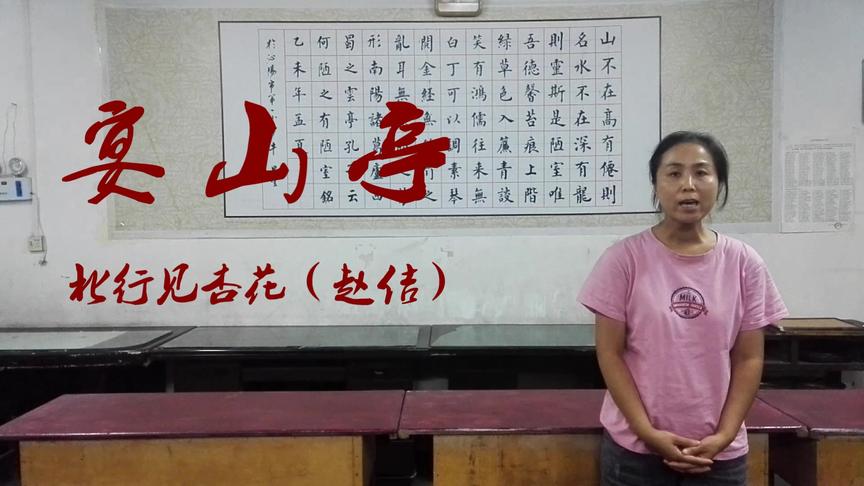 宴山亭
北行见杏花（赵佶）
山不在高有僊則
名水不在深有龍
則靈斯是陋室唯
吾德馨苔痕上階
緑草色入簾青談
笑有鴻儒往来無
白丁可以調素琴
閲金経無之
亂耳無
形南陽諸葛廬西
蜀之雲亭孔云
何陋之有陋室銘
乙未年孟夏
於沁陽市第
MILK